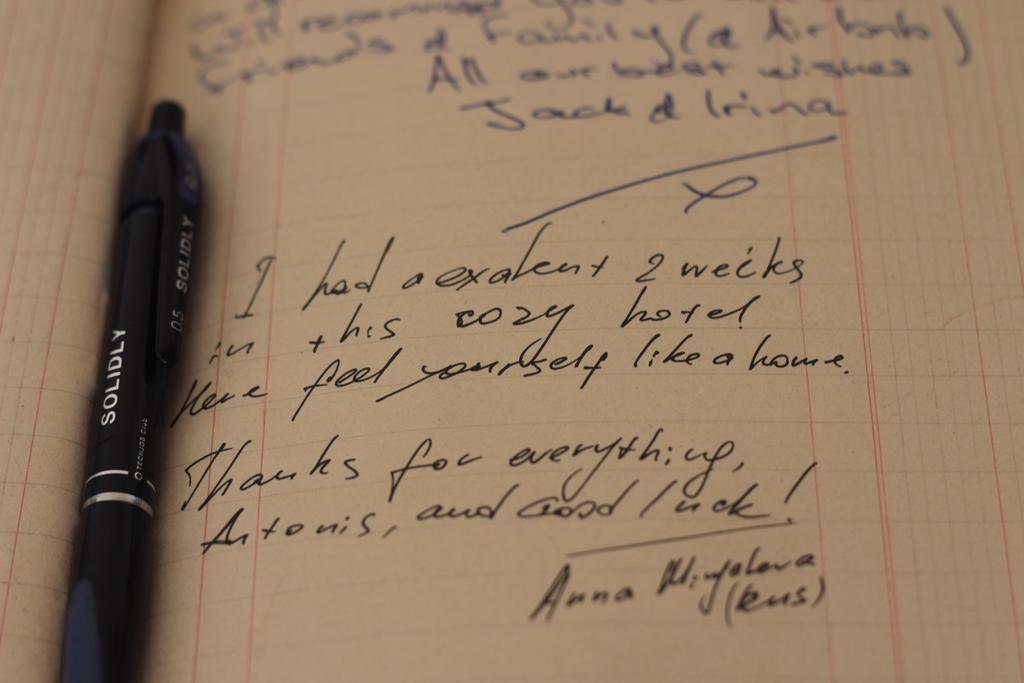 will recommend you
friends & Family (& Airbnb)
All our best wishes
Jack & Irina
I had a exalent 2 weeks
in this cozy hotel
Here feel yourself like a home.
Thanks for everything,
Antonis, and Good luck!
Anna
(RUS)
SOLIDLY
0.5 SOLIDLY